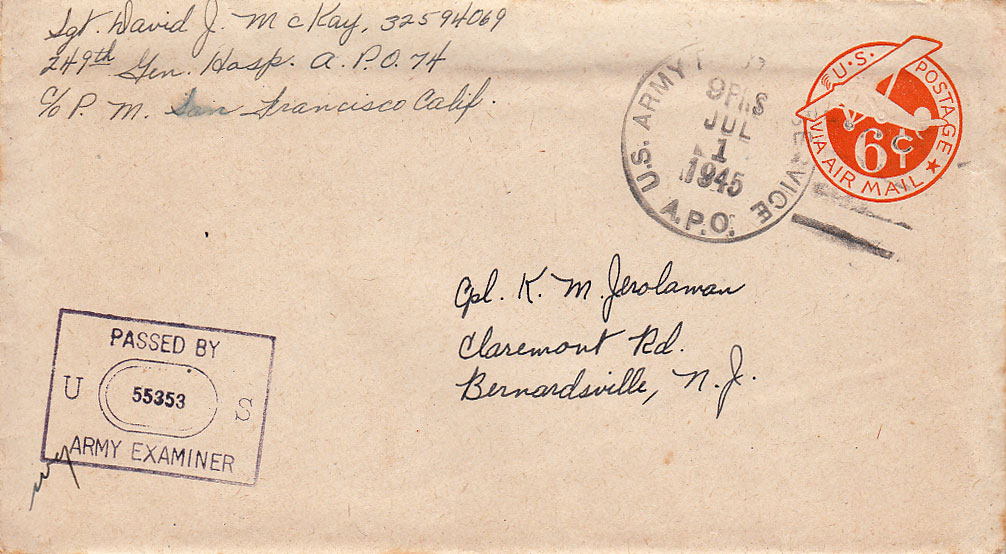 Sgt. David J. McKay, 32594069
249th Gen. Hosp. A.P.O. 74
C/o P. M. San Francisco Calif.
U.S. ARMY SERVICE
9PM
JUL
1
1945
A.P.O.
U.S. POSTAGE
6¢
VIA AIR MAIL
Cpl. K. M. Jerolaman
Claremont Rd.
Bernardsville, N. J.
PASSED BY
U 55353 S
ARMY EXAMINER